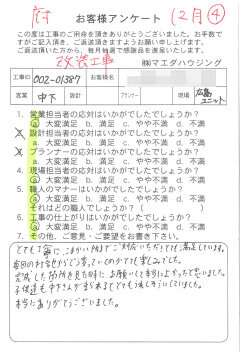 お客様アンケート
12月④
この度は工事のご用命を頂きありがとうございました。お手数で
すがご記入頂き、ご返送頂きますようお願い申し上げます。
ご返送頂いた方から、毎月抽選で感謝品を進呈いたします。
改装工事
㈱マエダハウジング
工事ID 002-01387 お客様名
営業 中下 設計 プランナー 現場 広島ユニット
1. 営業担当者の応対はいかがでしたでしょうか?
a. 大変満足 b. 満足 c. やや不満 d. 不満
2. 設計担当者の応対はいかがでしたでしょうか?
a. 大変満足 b. 満足 c. やや不満 d. 不満
3. プランナーの応対はいかがでしたでしょうか?
a. 大変満足 b. 満足 c. やや不満 d. 不満
4. 現場担当者の応対はいかがでしたでしょうか?
a. 大変満足 b. 満足 c. やや不満 d. 不満
5. 職人のマナーはいかがでしたでしょうか?
a. 大変満足 b. 満足 c. やや不満 d. 不満
それはどの職人でしょうか?( )
6. 工事の仕上がりはいかがでしたでしょうか?
a. 大変満足 b. 満足 c. やや不満 d. 不満
7. その他、ご意見・ご要望をお書き下さい。
とても丁寧に、細かい所までご対応いただきとても満足しています。
完成した箇所を見る時に、お願いして本当によかったと思いました。
本当にありがとうございました。